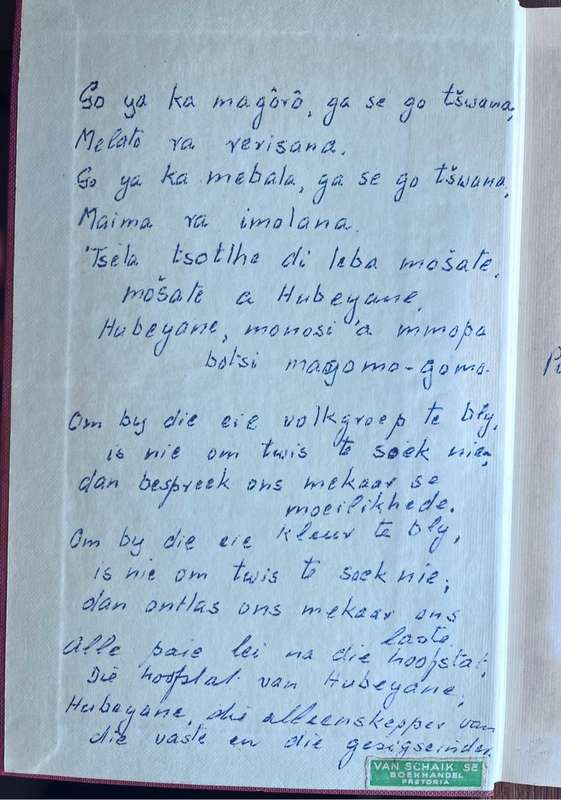 Go ya ka magôrô, ga se go tšwana,
Melato va verisana.
Go ya ka mebala, ga se go tšwana,
Maima va imolana.
Tsela tsotlhe di leba mošate,
mošate a Hubeyane,
Hubeyane, monosi 'a mmopa
botsi magomo-gomo.
Om by die eie volkgroep te bly,
is nie om twis te soek nie;
dan bespreek ons mekaar se
moeilikhede.
Om by die eie kleur te bly,
is nie om twis te soek nie;
dan ontlas ons mekaar ons
laste.
Alle paie lei na die hoofstat,
Die hoofstat van Hubeyane;
Hubeyane, die alleenskepper van
die vaste en die gesigseinder.
VAN SCHAIK SE
BOEKHANDEL
PRETORIA